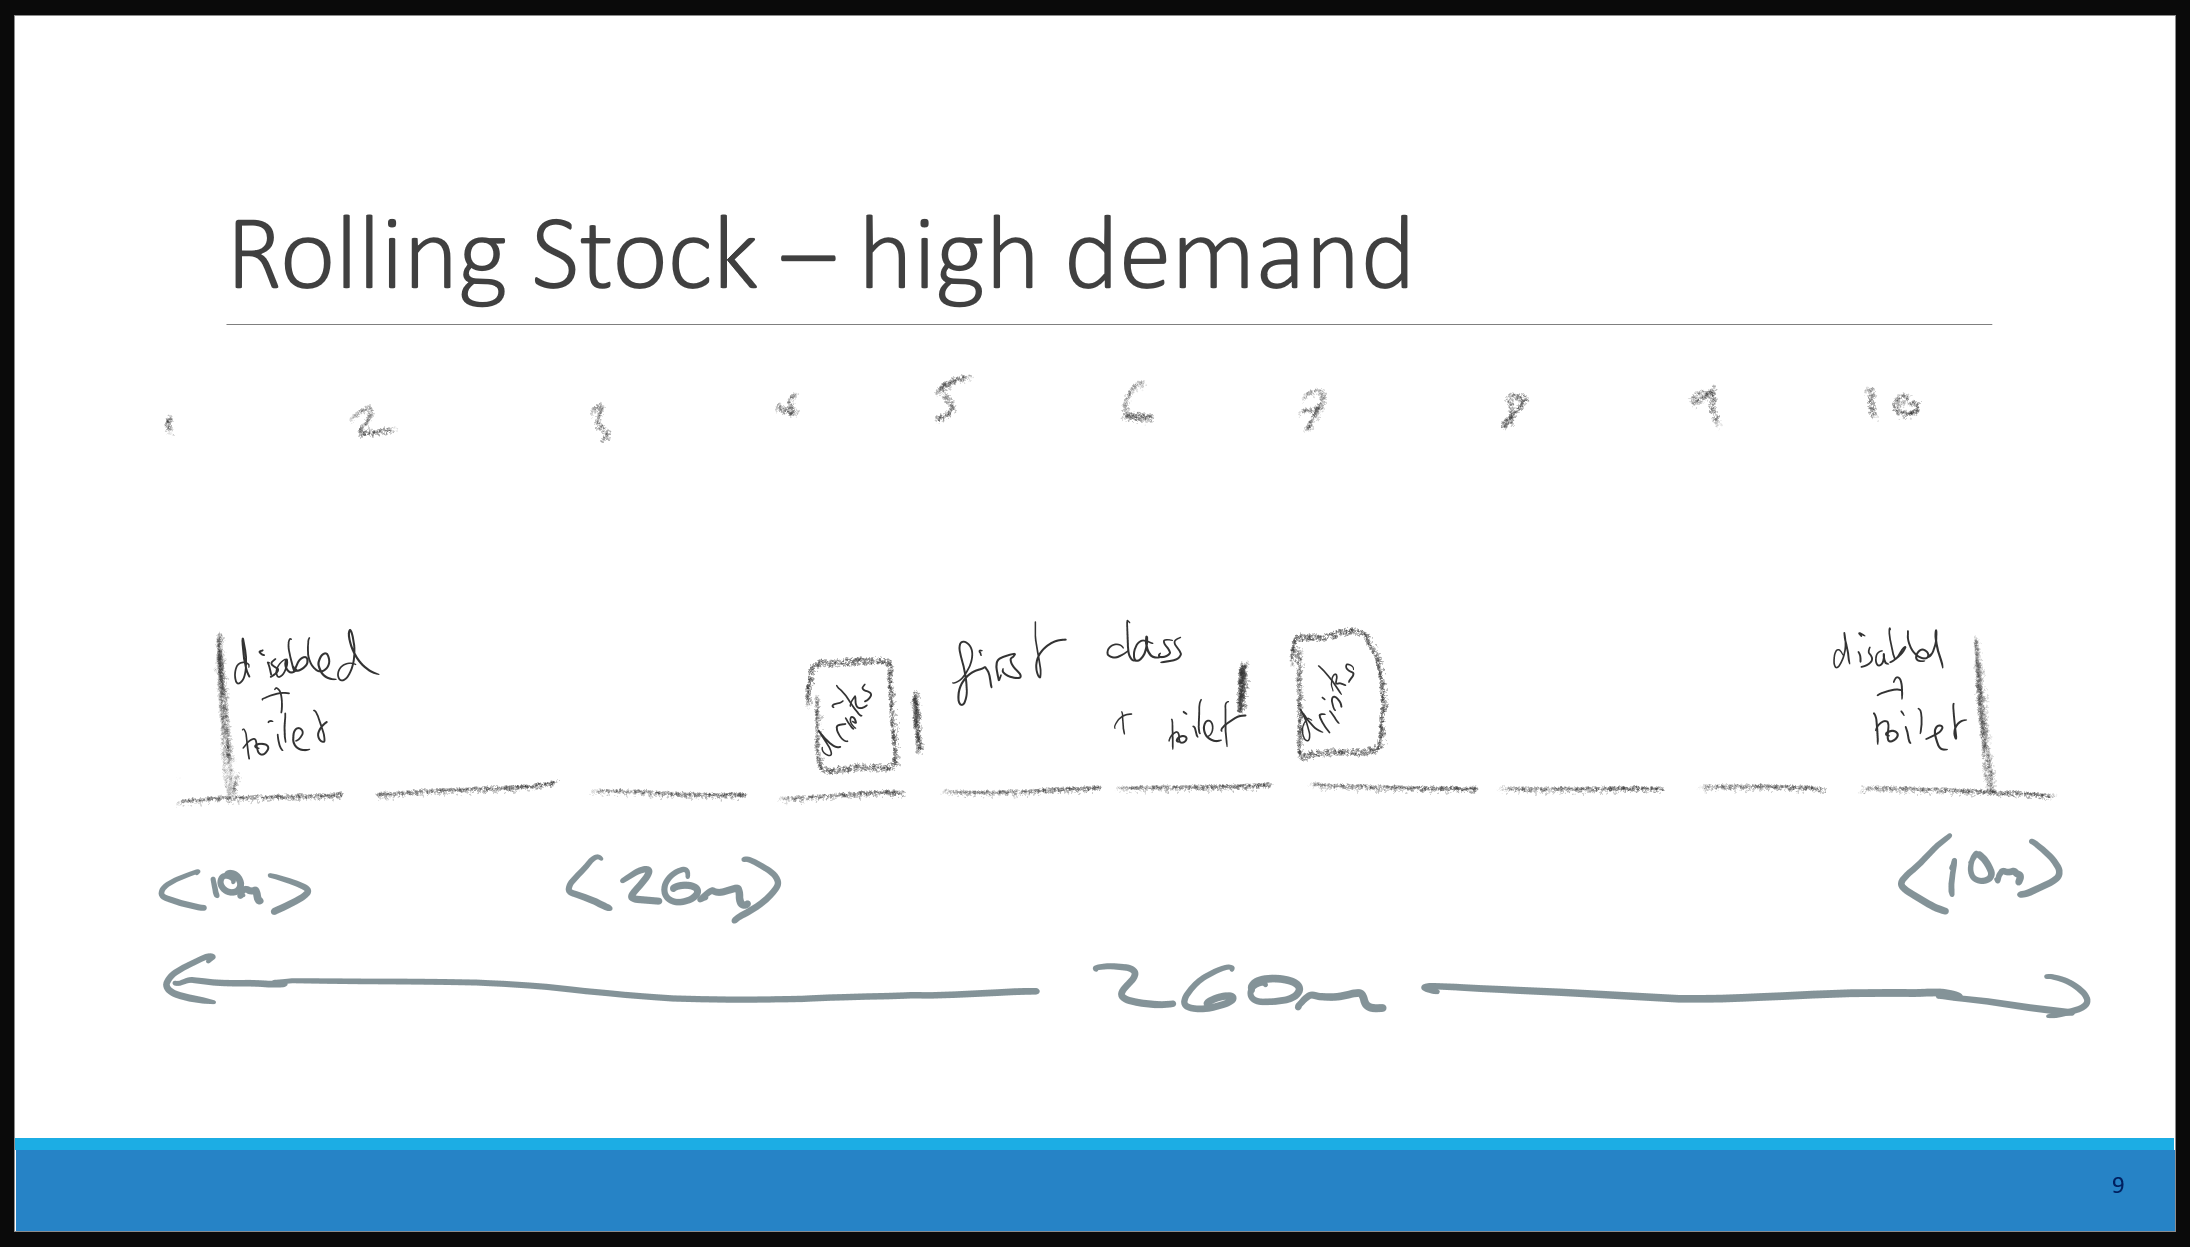 Rolling Stock – high demand
1 2 3 4 5 6 7 8 9 10
disabled + toilet
drinks
first class + toilet
drinks
disabled + toilet
<10m> <26m> <10m>
260m
9